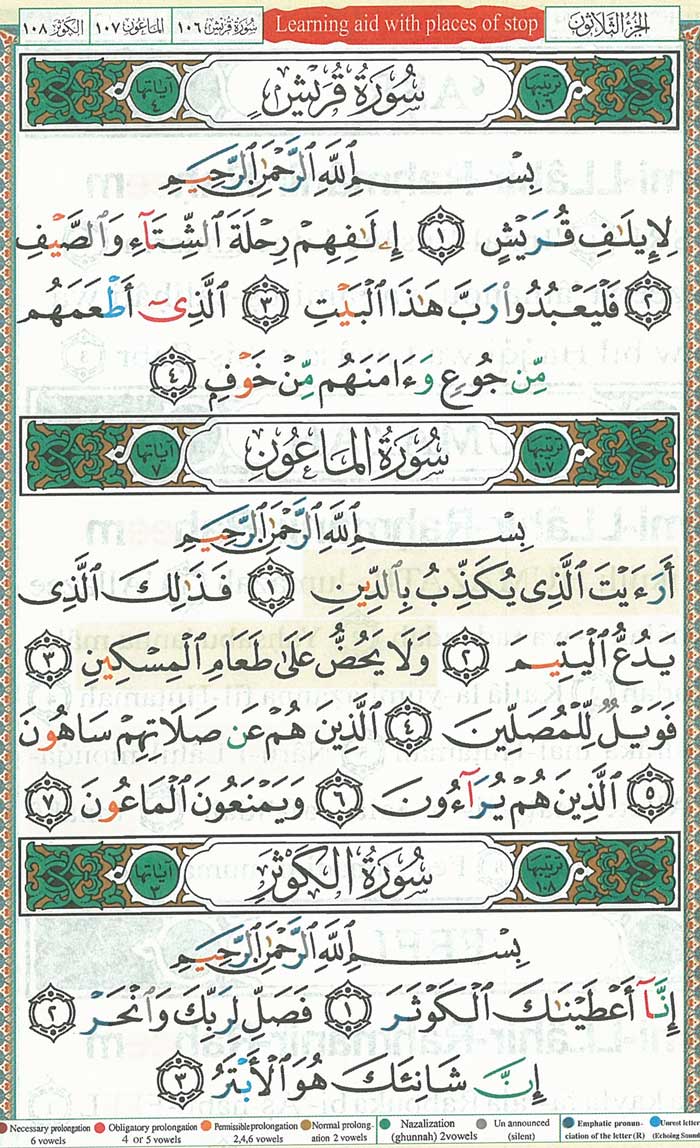 الجزء الثلاثون
Learning aid with places of stop
سورة قريش ١٠٦
الماعون ١٠٧
الكوثر ١٠٨
ترتيبها ١٠٦
سُورَةُ قُرَيْشٍ
آياتها ٤
بِسْمِ ٱللَّهِ ٱلرَّحْمَٰنِ ٱلرَّحِيمِ
لِإِيلَٰفِ قُرَيْشٍ ١ إِۦلَٰفِهِمْ رِحْلَةَ ٱلشِّتَآءِ وَٱلصَّيْفِ
٢ فَلْيَعْبُدُوا۟ رَبَّ هَٰذَا ٱلْبَيْتِ ٣ ٱلَّذِىٓ أَطْعَمَهُم
مِّن جُوعٍ وَءَامَنَهُم مِّنْ خَوْفٍ ٤
ترتيبها ١٠٧
سُورَةُ الْمَاعُونِ
آياتها ٧
بِسْمِ ٱللَّهِ ٱلرَّحْمَٰنِ ٱلرَّحِيمِ
أَرَءَيْتَ ٱلَّذِى يُكَذِّبُ بِٱلدِّينِ ١ فَذَٰلِكَ ٱلَّذِى
يَدُعُّ ٱلْيَتِيمَ ٢ وَلَا يَحُضُّ عَلَىٰ طَعَامِ ٱلْمِسْكِينِ ٣
فَوَيْلٌ لِّلْمُصَلِّينَ ٤ ٱلَّذِينَ هُمْ عَن صَلَاتِهِمْ سَاهُونَ
٥ ٱلَّذِينَ هُمْ يُرَآءُونَ ٦ وَيَمْنَعُونَ ٱلْمَاعُونَ ٧
ترتيبها ١٠٨
سُورَةُ الْكَوْثَرِ
آياتها ٣
بِسْمِ ٱللَّهِ ٱلرَّحْمَٰنِ ٱلرَّحِيمِ
إِنَّآ أَعْطَيْنَٰكَ ٱلْكَوْثَرَ ١ فَصَلِّ لِرَبِّكَ وَٱنْحَرْ ٢
إِنَّ شَانِئَكَ هُوَ ٱلْأَبْتَرُ ٣
Necessary prolongation 6 vowels
Obligatory prolongation 4 or 5 vowels
Permissible prolongation 2,4,6 vowels
Normal prolongation 2 vowels
Nazalization (ghunnah) 2vowels
Un announced (silent)
Emphatic pronunciation of the letter (R)
Unrest letters (Echoing Sound